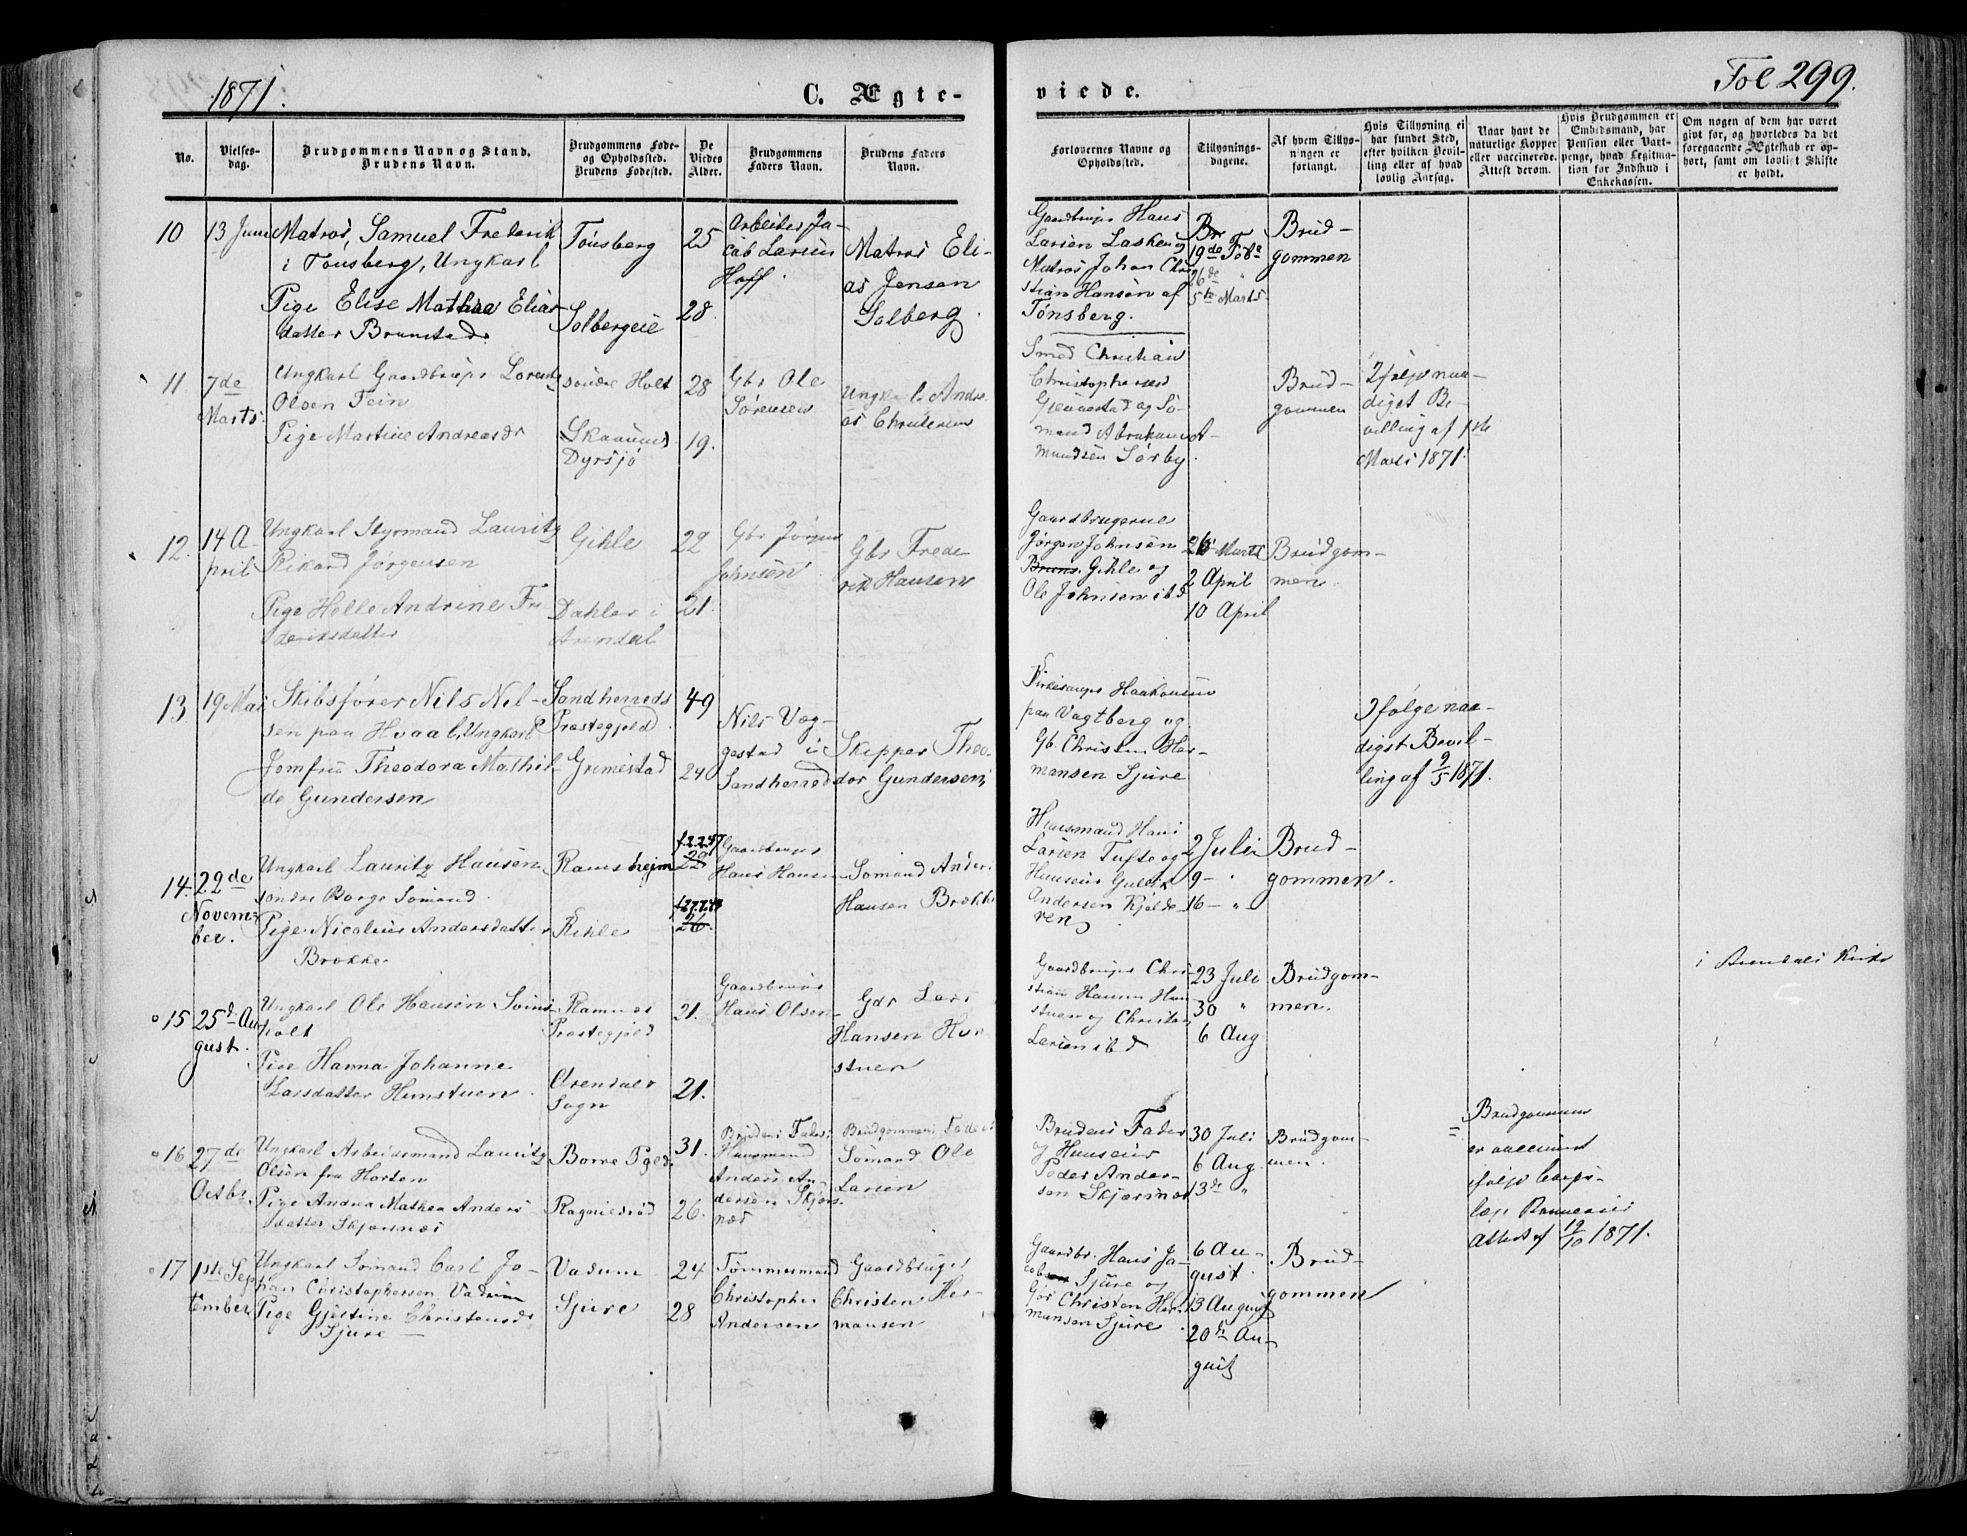 1871.
C. Ægte-
viede.
Fol 299.
No.
Vielses-
dag.
Brudgommens Navn og Stand.
Brudens Navn.
Brudgommens Føde-
og Opholdssted.
Brudens Fødested.
De
Viedes
Alder.
Brudgommens
Faders Navn.
Brudens Faders
Navn.
Forlovernes Navne og
Opholdssted.
Tillysnings-
dagene.
Af hvem Tillys-
ningen er
forlangt.
Hvis Tillysning ei
har fundet Sted,
efter hvilken Bevil-
ling eller af hvad
lovlig Aarsag.
Naar havt de
naturlige Kopper
eller vaccinerede.
Attest derom.
Hvis Brudgommen er
Embedsmand, har
Pension eller Vart-
penge, hvad Legitima-
tion for Indskud i
Enkekassen.
Om nogen af dem har været
gift før, og hvorledes da det
foregaaende Ægteskab er op-
hørt, samt om lovligt Skifte
er holdt.
10
13 Juni
Matros, Samuel Frederik
i Tønsberg, Ungkarl
Pige Elise Mathea Elias
datter Brunstad
Tønsberg
Solbergeie
25
28.
Arbeider Ja-
cob Larsen
Hoff.
Matros Eli-
as Jensen
Solberg
Gaardbruger Hans
Larsen Lasken og
Matros Johan Chri
stian Hansen af
Tønsberg.
19de Feb
26de "
5te Marts
Brud-
gommen
11
7de
Marts
Ungkarl Gaardbruger Lorents
Olsen Fein
Pige Martine Andreasdr
søndre Holt
Dyrsjø
28
19.
Gbr Ole
Sørensen
Ungkarl Andre
as Christensen
Smed Christian
Christophersen
Grennestad og Sø-
mand Abraham A-
mundsen Sørby.
Brud-
gommen
Ifølge naa-
digst Be-
villing af 1ste
Marts 1871.
12.
14 A
pril
Ungkarl Styrmand Lauritz
Rikard Jørgensen
Pige Helle Andrine Fre
deriksdatter
Gihle
Dahler i
Arendal
22
21.
Gbr Jørgen
Johnsen
Gbr Frede
rik Hansen
Gaardbrugerne
Jørgen Johnsen
Gihle og
Ole Johnsen ibd
26 Marts
2 April
10 April
Brudgom-
men.
13.
19 Mai
Skibsfører Nils Niel-
sen paa Hvaal, Ungkarl
Jomfru Theodora Mathil-
de Gundersen
Sandherreds
Præstegjeld
Grimestad
49
24
Nils Væg-
gestad i
Sandherred
Skipper Theo-
dor Gundersen
Kirkesanger Haakonsen
paa Vagtberg og
Gb. Christen Her-
mansen Sjure
Ifølge naa-
digst Bevil-
ling af 9/5 1871.
14.
22de
Novem-
ber.
Ungkarl Lauritz Hansen
søndre Borge Sømand.
Pige Nicoline Andersdatter
Brække
Ramsheim
Kihle
26.
Gaardbruger
Hans Hansen
Sømand Anders
Hansen Brække
Husmand Hans
Larsen Tufte og
Huseier Gullik
Andersen Kjølde-
ren
2 Juli
9- "
16- "
Brud-
gommen.
15
25de Au-
gust.
Ungkarl Ole Hansen Svins-
holt
Pige Hanna Johanne
Larsdatter Hunstuen
Ramnes
Præstegjeld
Arendals
Sogn
21.
21.
Gaardbruger
Hans Olsen
Gbr Lars
Hansen Hun
stuen
Gaardbruger Chri-
stian Hansen Hun
stuen og Christen
Larsen ibd
23 Juli
30 "
6 Aug
Brudgom-
men.
i Arendals Kirke
16
27de
Octbr
Ungkarl Arbeidsmand Lauritz
Olsen fra Horten
Pige Andrea Mathea Anders
datter Skjærsnæs
Borre Pgld
Ragnildrød
31.
26.
Brudens Fader
Husmand
Anders An-
dersen Skjærs-
næs
Brudgommens Fader
Sømand Ole
Larsen
Brudens Fader
og Huseier
Peder Ander-
sen Skjærsnæs
30 Juli
6 Aug
13de "
Brudgom-
men.
Brudgommen
er vaccineret
ifølge Corps-
læge
Attest af 12/10 1871.
17
1ste Sep
tember
Ungkarl Sømand Carl Jo-
han Christophersen Vadum
Pige Gjertine Christensdr
Sjure
Vadum
Sjure
24
28
Tømmermand
Christopher
Andersen
Gaardbruger
Christen Her-
mansen
Gaardbr. Hans Ja-
cobsen Sjure og
Gbr Christen Her-
mansen Sjure
6 Au-
gust.
13 August
20de Au-
gust
Brud-
gommen